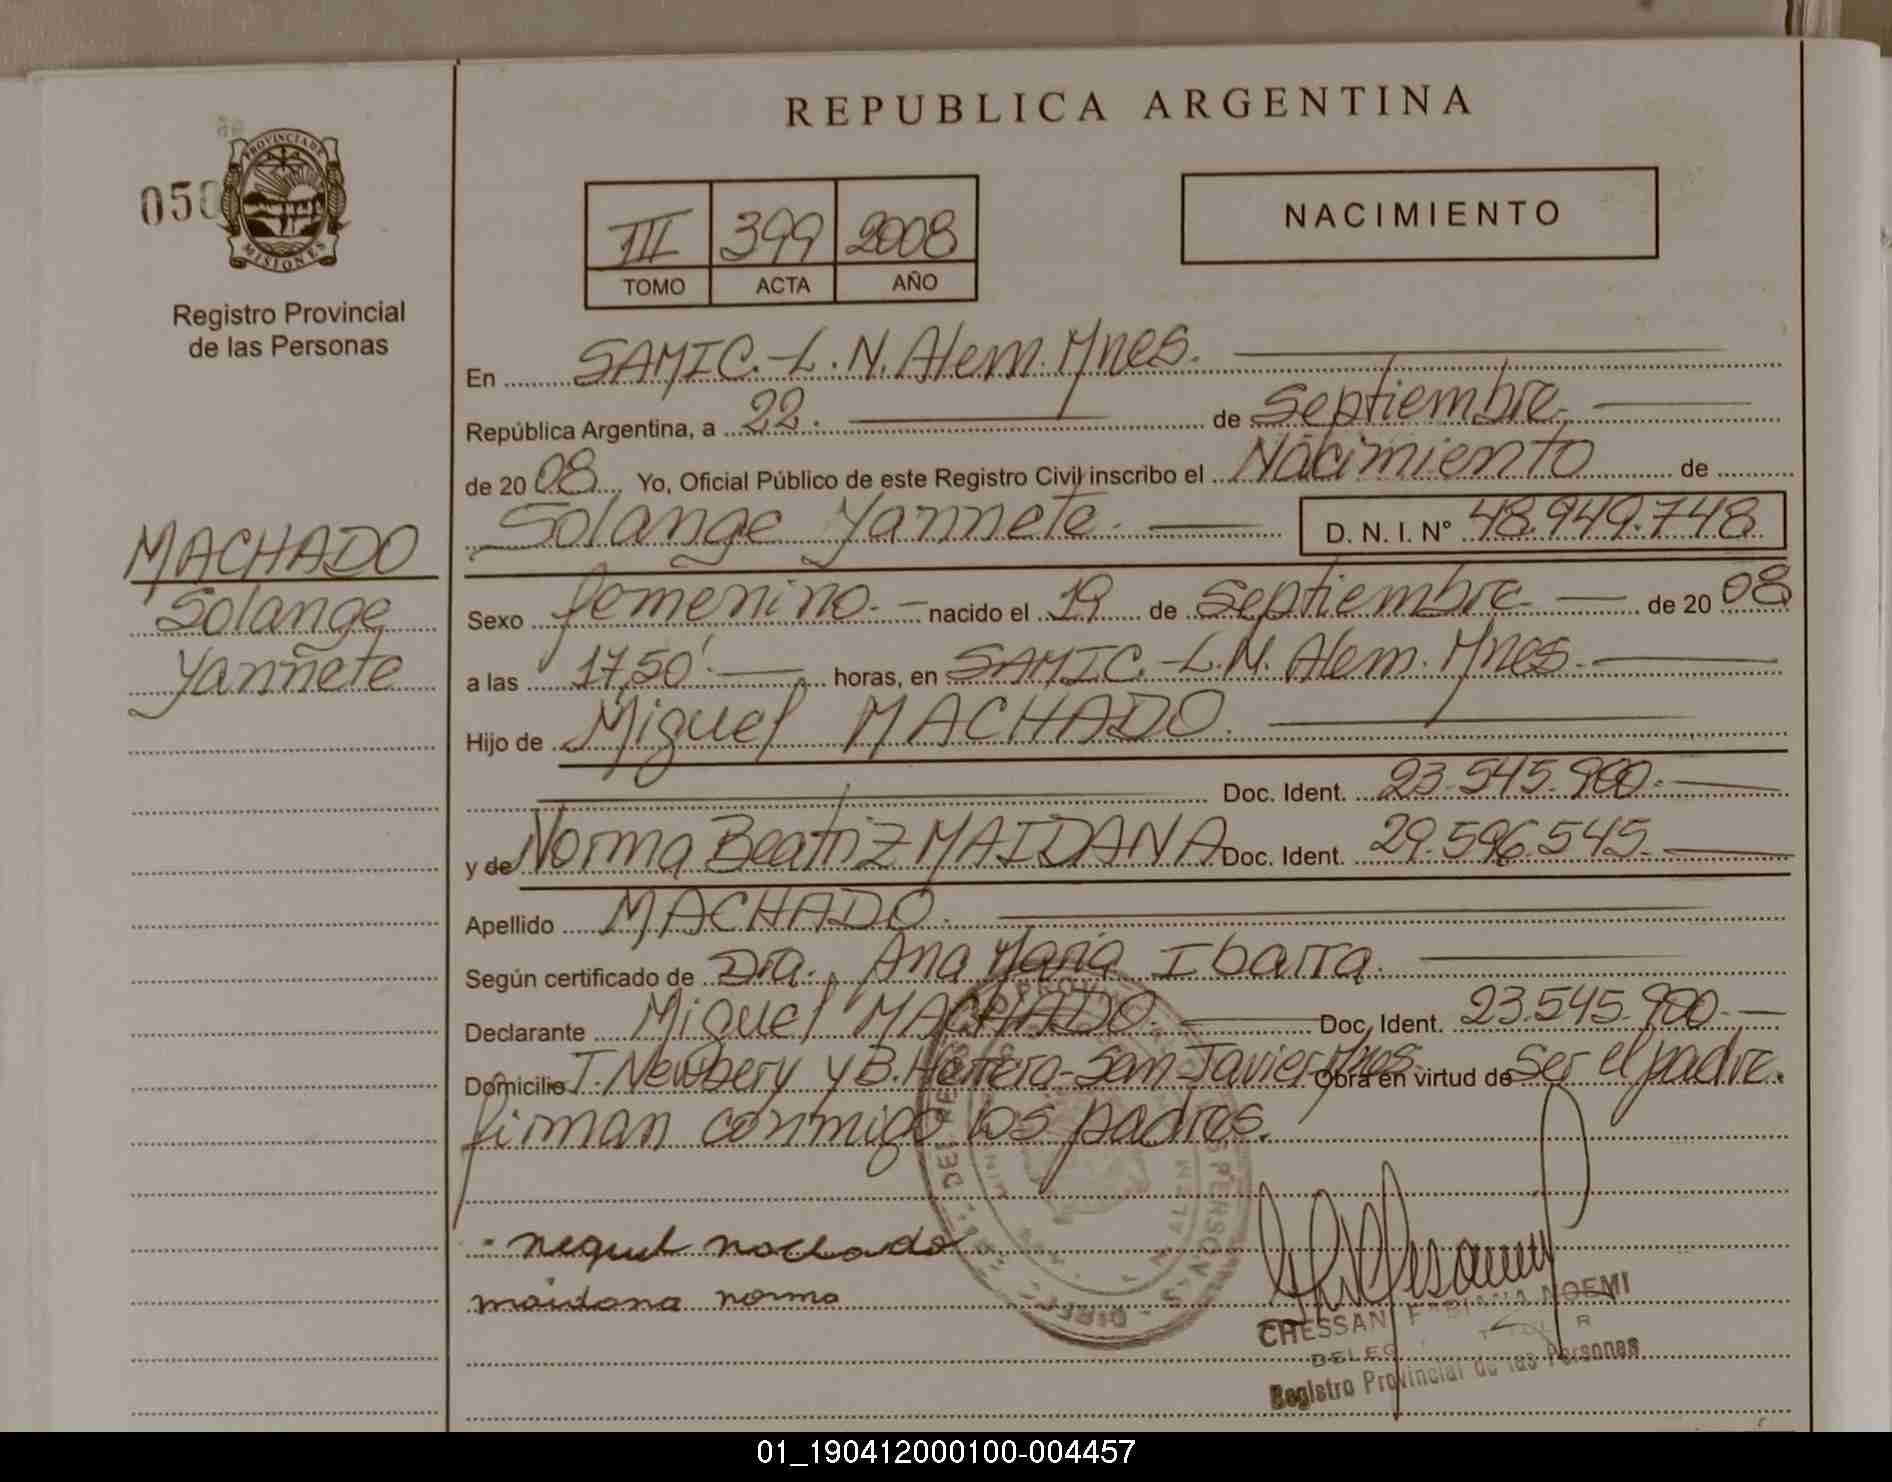 REPUBLICA ARGENTINA
050
PROVINCIA DE
MISIONES
Registro Provincial
de las Personas
NACIMIENTO
III 399 2008
TOMO ACTA AÑO
En SAMIC.-L.N.Alem.Mnes.
República Argentina, a 22. de Septiembre.
de 20 08. Yo, Oficial Público de este Registro Civil inscribo el Nacimiento de
Solange Yannete. D. N. I. Nº 48.949.748
MACHADO
Solange
Yannete
Sexo femenino. nacido el 19 de Septiembre. de 20 08
a las 17,50'. horas, en SAMIC.-L.N.Alem.Mnes.
Hijo de Miguel MACHADO.
Doc. Ident. 23.545.900.
y de Norma Beatriz MAIDANA Doc. Ident. 29.596.545.
Apellido MACHADO.
Según certificado de Dra. Ana María Ibarra.
Declarante Miguel MACHADO. Doc. Ident. 23.545.900.
Domicilio J. Newbery y B. Herrero-San Javier Mnes. Obra en virtud de Ser el padre.
firman conmigo los padres.
maidana norma
CHESSANI FABIANA NOEMI
Registro Provincial de las Personas
01_190412000100-004457